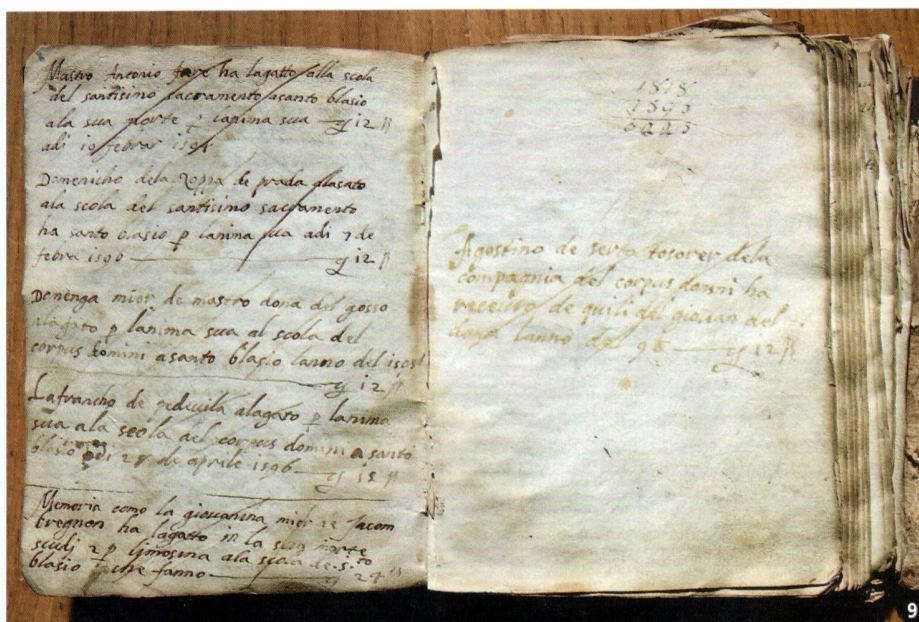 Mastro Antonio fare ha lagatto alla scola
del santisimo sacramento asanto blasio
ala sua morte p lanima sua 12
adi 10 febrar
Domenicho dela de prada alasato
ala scola del santisimo sacramento
ha santo blasio p lanima sua adi 7 de
febra 1596 12
Domenga mior de mastro dona del gosso
alagato p lanima sua al scola del
corpus domini asanto blasio lanno del
12
Lafrancho de pedevila alagato p lanima
sua ala scola del corpus domini a santo
blasio de aprile 1596
Memoria como la giovanina mior de Jacom
bregnon ha lagatto in la sua morte
scudi 2 p limosina ala scola de s.to
blasio che fanno 24
1595
Agostino de serta tosorer dela
compagnia del corpus domni ha
receuto de quili del giovan del
lanno del 98 12
9